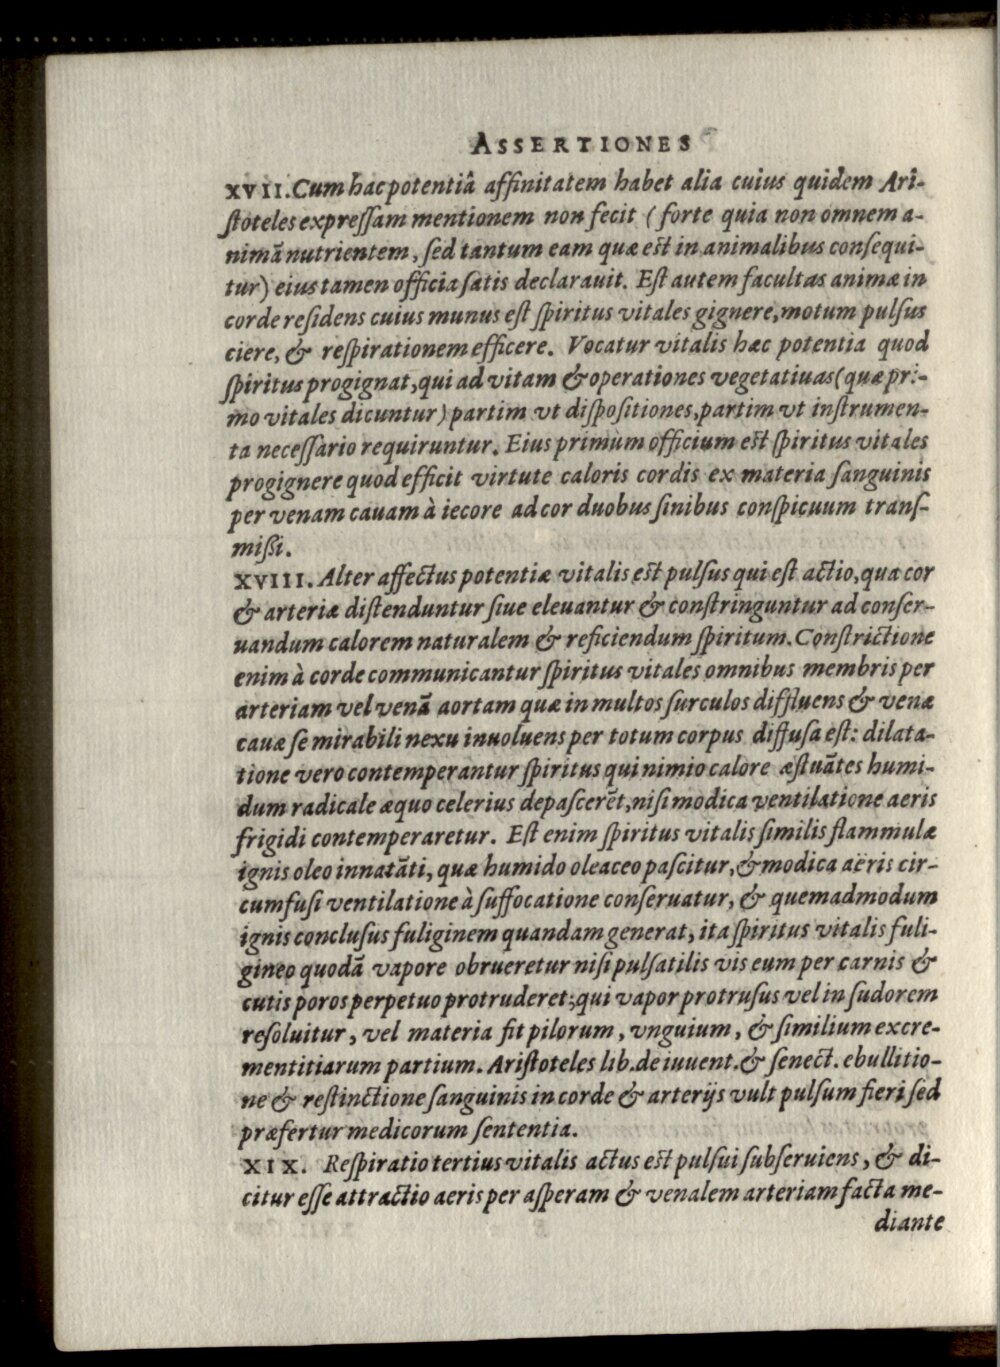 ASSERTIONES
XVII. Cum hac potentiâ affinitatem habet alia cuius quidem Ari-
ſtoteles expreſſam mentionem non fecit (forte quia non omnem a-
nimā nutrientem, ſed tantum eam quæ eſt in animalibus conſequi-
tur) eius tamen officia ſatis declarauit. Eſt autem facultas animæ in
corde reſidens cuius munus eſt ſpiritus vitales gignere, motum pulſus
ciere, & reſpirationem efficere. Vocatur vitalis hæc potentia quod
ſpiritus progignat, qui ad vitam & operationes vegetatiuas (quæ pri-
mo vitales dicuntur) partim vt diſpoſitiones, partim vt inſtrumen-
ta neceſſario requiruntur. Eius primùm officium eſt ſpiritus vitales
progignere quod efficit virtute caloris cordis ex materia ſanguinis
per venam cauam à iecore ad cor duobus ſinibus conſpicuum tranſ-
miſſi.
XVIII. Alter affectus potentiæ vitalis eſt pulſus qui eſt actio, qua cor
& arteriæ diſtenduntur ſiue eleuantur & conſtringuntur ad conſer-
uandum calorem naturalem & reficiendum ſpiritum. Conſtrictione
enim à corde communicantur ſpiritus vitales omnibus membris per
arteriam vel venā aortam quæ in multos ſurculos diffluens & venæ
cauæ ſe mirabili nexu inuoluens per totum corpus diffuſa eſt: dilata-
tione vero contemperantur ſpiritus qui nimio calore æſtuātes humi-
dum radicale æquo celerius depaſcerēt, niſi modica ventilatione aeris
frigidi contemperaretur. Eſt enim ſpiritus vitalis ſimilis flammulæ
ignis oleo innatāti, quæ humido oleaceo paſcitur, & modica aëris cir-
cumfuſi ventilatione à ſuffocatione conſeruatur, & quemadmodum
ignis concluſus fuliginem quandam generat, ita ſpiritus vitalis fuli-
gineo quodā vapore obrueretur niſi pulſatilis vis eum per carnis &
cutis poros perpetuo protruderet; qui vapor protruſus vel in ſudorem
reſoluitur, vel materia fit pilorum, vnguium, & ſimilium excre-
mentitiarum partium. Ariſtoteles lib. de iuuent. & ſenect. ebullitio-
ne & reſtinctione ſanguinis in corde & arterijs vult pulſum fieri ſed
præfertur medicorum ſententia.
XIX. Reſpiratio tertius vitalis actus eſt pulſui ſubſeruiens, & di-
citur eſſe attractio aeris per aſperam & venalem arteriam facta me-
diante